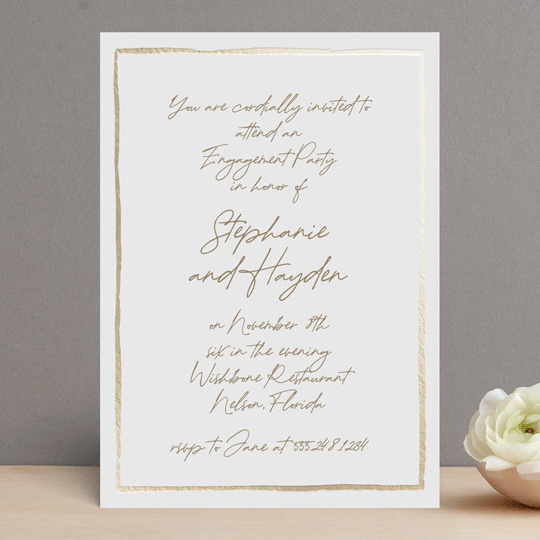 You are cordially invited to
attend an
Engagement Party
in honor of
Stephanie
and Hayden
on November 8th
six in the evening
Wishbone Restaurant
Nelson, Florida
rsvp to Jane at 555.248.1234